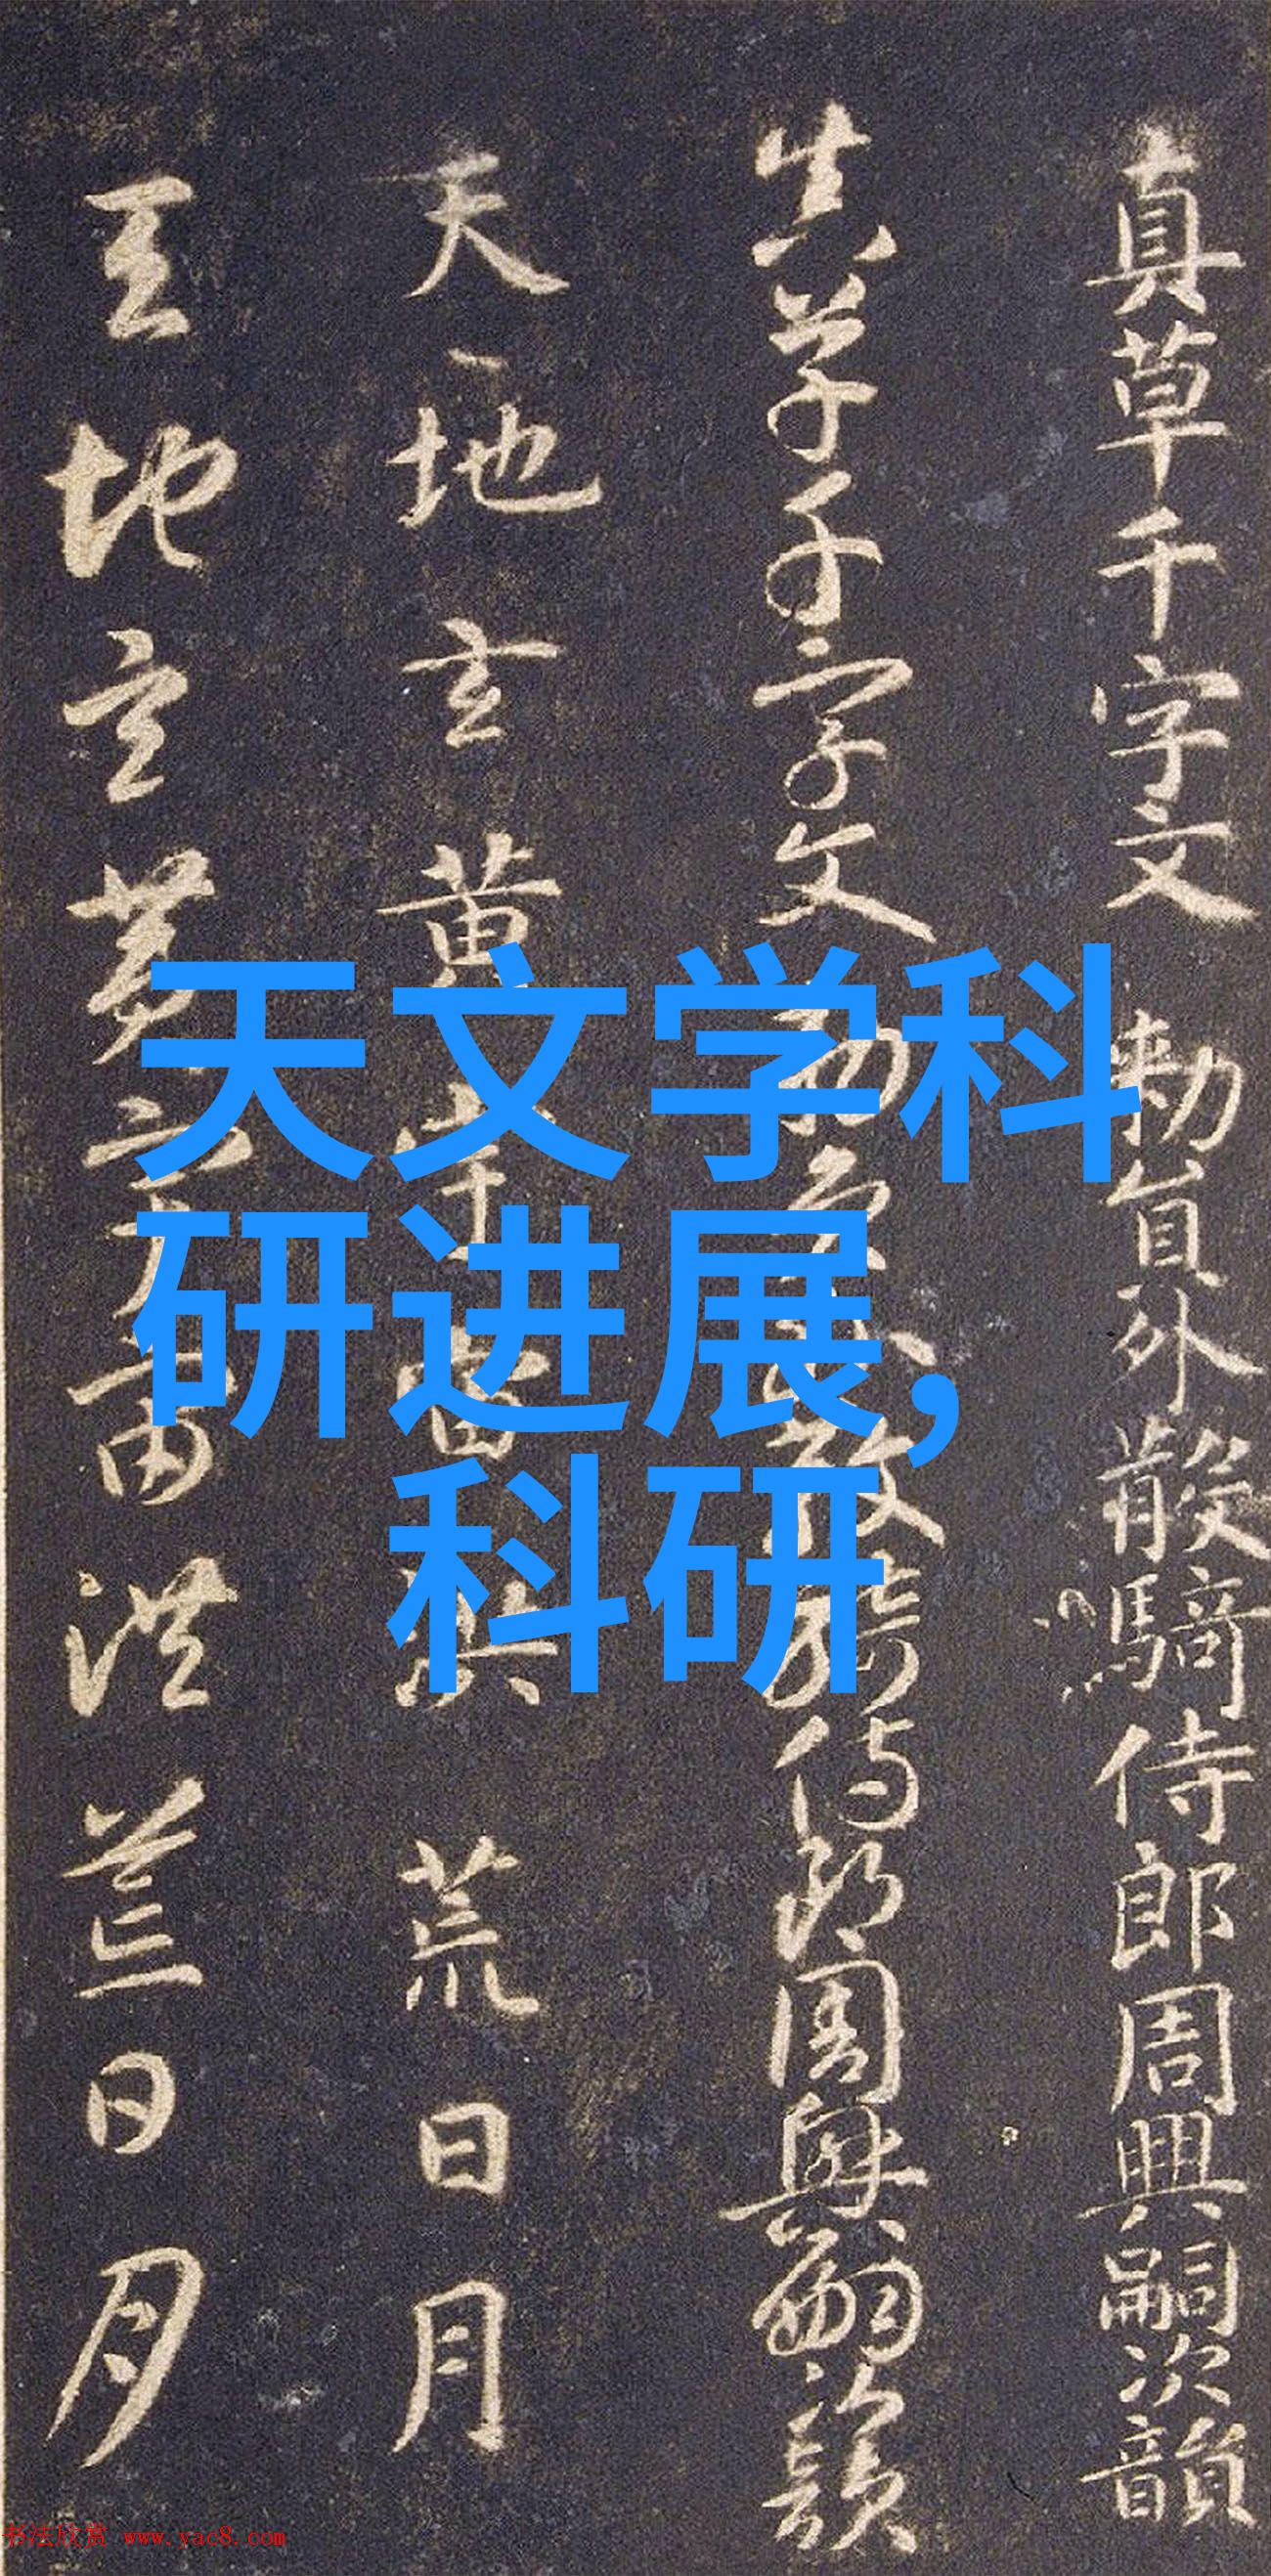 真草千字文勅員外散騎侍郎周興嗣次韻
真草千字文勅員外散騎侍郎周興嗣次韻
天地玄黄宇宙洪荒日月
天地玄黄宇宙洪荒日月
天文学科
研进展,
科研
书法欣赏 www.yac8.com